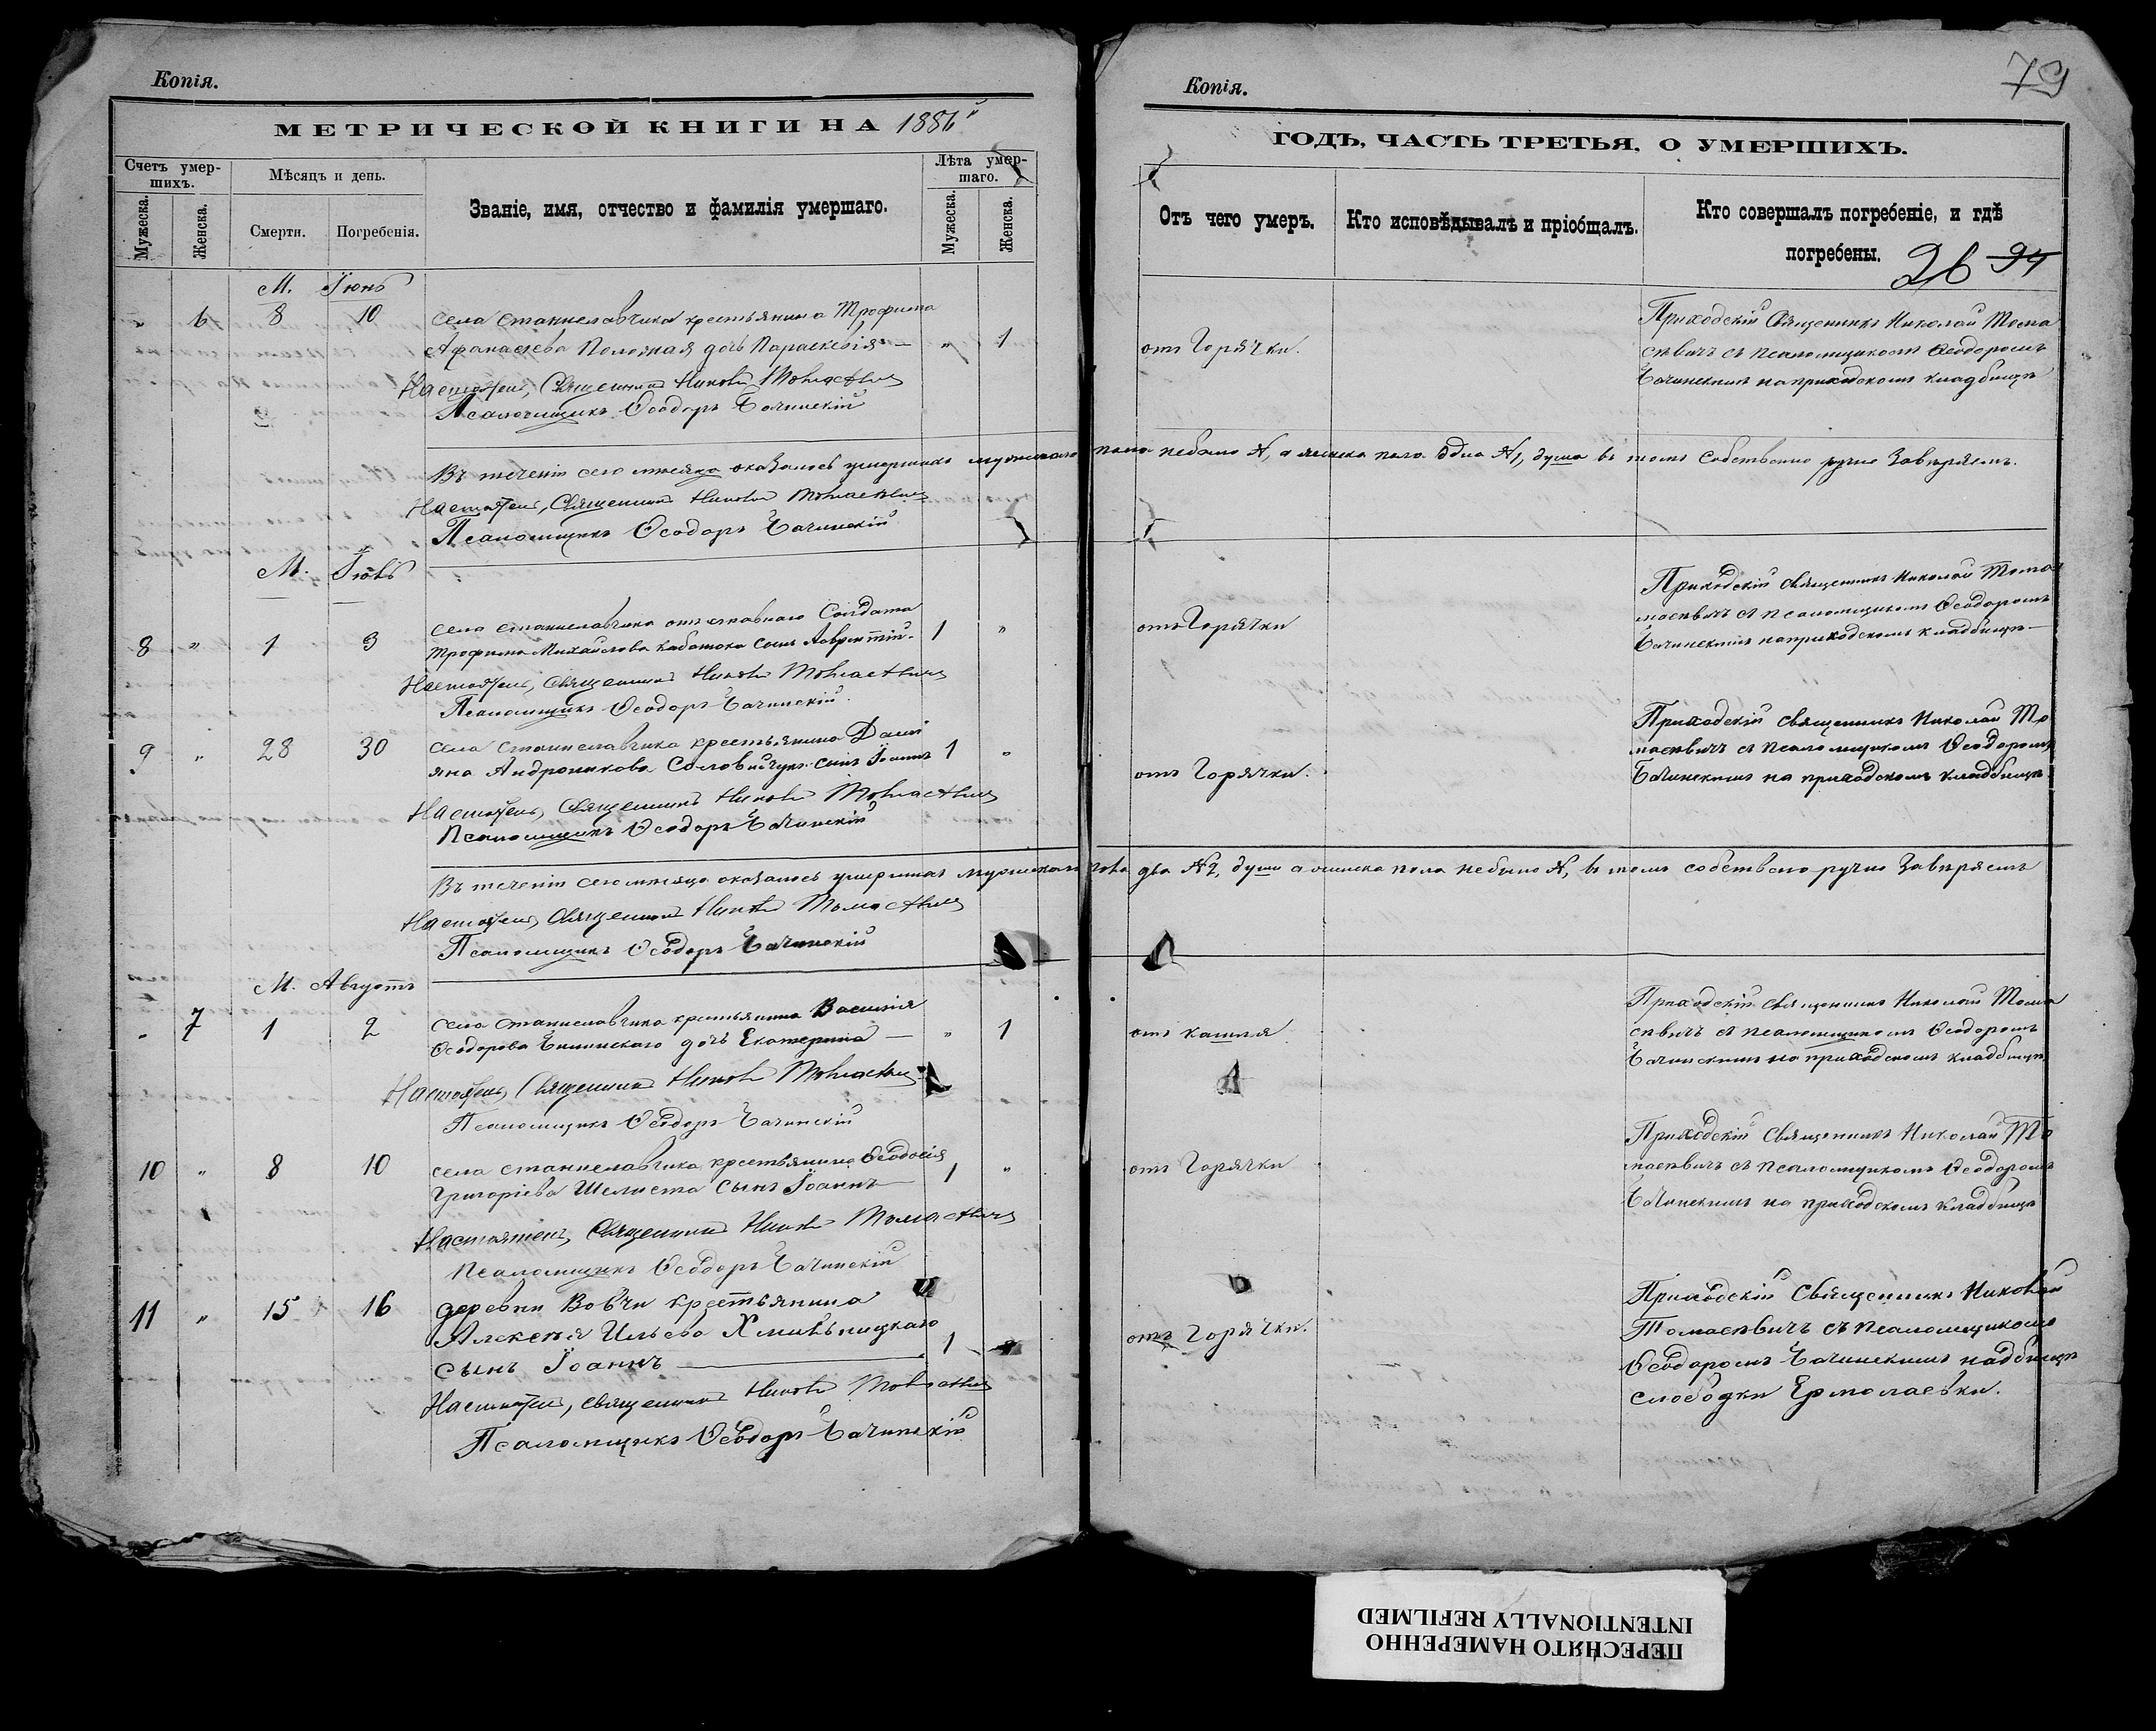 Копія.
МЕТРИЧЕСКОЙ КНИГИ НА 1886й
Счетъ умер-
шихъ.
Мѣсяцъ и день.
Званіе, имя, отчество и фамилія умершаго.
Лѣта умер-
шаго.
Мужеска.
Женска.
Смерти.
Погребенія.
Мужеска.
Женска.
М. Іюнь
" 6 8 10 села Станиславчика крестьянина Трофима
Афанасьева дочь Параскевія — " 1
Настоятель, Священникъ Николай Томасевичъ
Псаломщикъ Ѳеодоръ Бачинскій
Въ теченіи сего мѣсяца оказалось умершихъ мужескаго пола небыло №, а женска пола одна №1, душа въ томъ собственно ручно завѣряемъ.
Настоятель, Священникъ Николай Томасевичъ
Псаломщикъ Ѳеодоръ Бачинскій
М. Іюль
8 " 1 3 села Станиславчика отставнаго Солдата
Трофима Михайлова сынъ Лаврентій. 1 "
Настоятель, Священникъ Николай Томасевичъ
Псаломщикъ Ѳеодоръ Бачинскій
9 " 28 30 села Станиславчика крестьянина Даміи
яна Андроникова сынъ Іоаннъ 1 "
Настоятель, Священникъ Николай Томасевичъ
Псаломщикъ Ѳеодоръ Бачинскій
Въ теченіи сего мѣсяца оказалось умершихъ мужескаго пола два №2, души а женска пола небыло №, въ томъ собствено ручно завѣряемъ
Настоятель, Священникъ Николай Томасевичъ
Псаломщикъ Ѳеодоръ Бачинскій
М. Августъ
" 7 1 2 села Станиславчика крестьянина Василія
Ѳеодорова дочь Екатерина — " 1
Настоятель, Священникъ Николай Томасевичъ
Псаломщикъ Ѳеодоръ Бачинскій
10 " 8 10 села Станиславчика крестьянина Ѳеодосія
Григоріева Шелиста сынъ Іоаннъ — 1 "
Настоятель, Священникъ Николай Томасевичъ
Псаломщикъ Ѳеодоръ Бачинскій
11 " 15 16 деревни Вовчи крестьянина
Алексѣя Ильева Хмильницкаго
сынъ Іоаннъ — 1 "
Настоятель, Священникъ Николай Томасевичъ
Псаломщикъ Ѳеодоръ Бачинскій
Копія.
79
ГОДЪ, ЧАСТЬ ТРЕТЬЯ, О УМЕРШИХЪ.
Отъ чего умеръ.
Кто исповѣдывалъ и пріобщалъ.
Кто совершалъ погребеніе, и гдѣ
погребены.
26 94
отъ Горячки.
Приходскій Священникъ Николай Тома
севичъ съ псаломщикомъ Ѳеодоромъ
Бачинскимъ на приходскомъ кладбищѣ
отъ Горячки
Приходскій священникъ Николай Тома
масевичъ съ псаломщикомъ Ѳеодоромъ
Бачинскимъ на приходскомъ кладбищѣ —
отъ Горячки.
Приходскій священникъ Николай То
масевичъ съ псаломщикомъ Ѳеодоромъ
Бачинскимъ на приходскомъ кладбищѣ
отъ кашля
Приходскій священникъ Николай Тома
севичъ съ псаломщикомъ Ѳеодоромъ
Бачинскимъ на приходскомъ кладбищѣ
отъ Горячки
Приходскій Священникъ Николай То
масевичъ съ псаломщикомъ Ѳеодоромъ
Бачинскимъ на приходскомъ кладбищѣ
отъ Горячки.
Приходскій Священникъ Николай
Томасевичъ съ псаломщикомъ
Ѳеодоромъ Бачинскимъ
слободки Ермолаевки.
ПЕРЕСНЯТО НАМЕРЕННО
INTENTIONALLY REFILMED